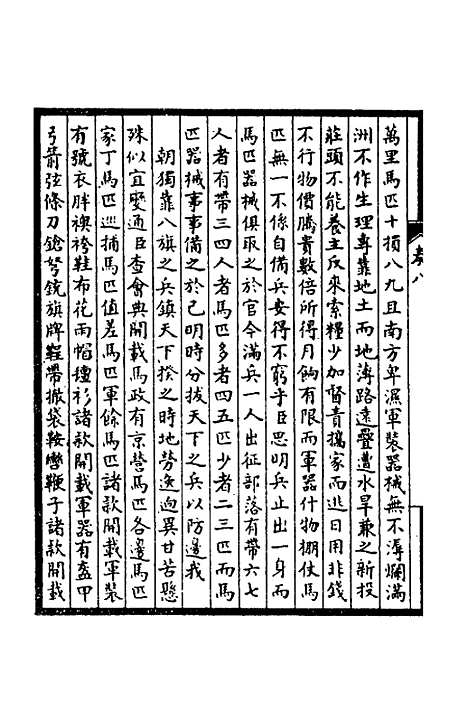 卷八
萬里馬匹十損八九且南方卑濕軍裝器械無不溽爛滿
洲不作生理專靠地土而地薄路遠疊遭水旱兼之新投
莊頭不能養主反來索糧少加督責攜家而逃日用非錢
不行物價騰貴數倍所得月餉有限而軍器什物棚仗馬
匹無一不係自備兵安得不窮乎臣思明兵止出一身而
馬匹器械俱取之於官今滿兵一人出征部落有帶六七
人者有帶三四人者馬匹多者四五匹少者二三匹而馬
匹器械事事備之於己明時分拔天下之兵以防邊我
朝獨靠八旗之兵鎮天下揆之時地勞逸迥異甘苦懸
殊似宜變通臣查會典開載馬政有京營馬匹各邊馬匹
家丁馬匹巡捕馬匹值差馬匹軍餘馬匹諸款開載軍裝
有號衣胖襖袴鞋布花雨帽氊衫諸款開載軍器有盔甲
弓箭弦條刀鎗弩銃旗牌鞓帶撒袋鞍轡鞭子諸款開載